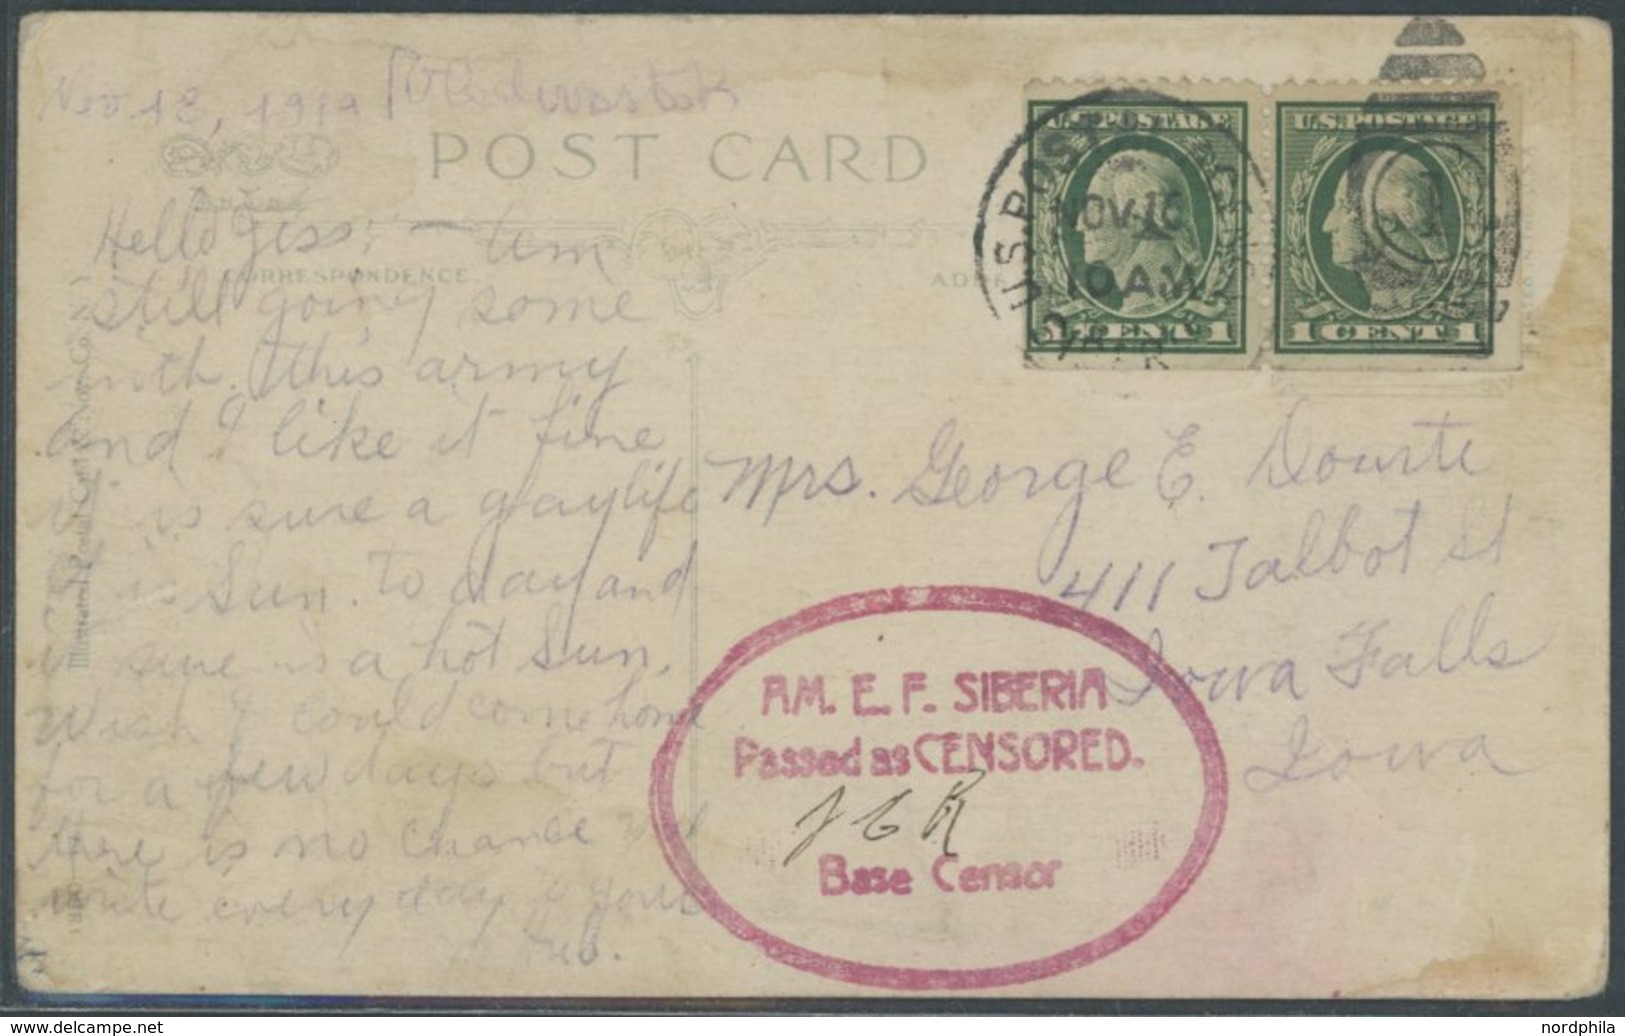 Nov 12, 1919 Vladivostok
POST CARD
CORRESPONDENCE
U.S. POSTAGE
U.S. POSTAGE
NOV 16
10 AM
CENT 1
1 CENT 1
Hello Jess: - Am
still going some
with this army
and I like it fine
is sure a gay life
is Sun. to day and
sure is a hot Sun.
Wish I could come home
for a few days but
there is no chance
write every day
Hub.
Mrs. George E. Dourte
411 Talbot St
Iowa Falls
Iowa
AM. E. F. SIBERIA
Passed as CENSORED.
Base Censor
www.delcampe.net
nordphila